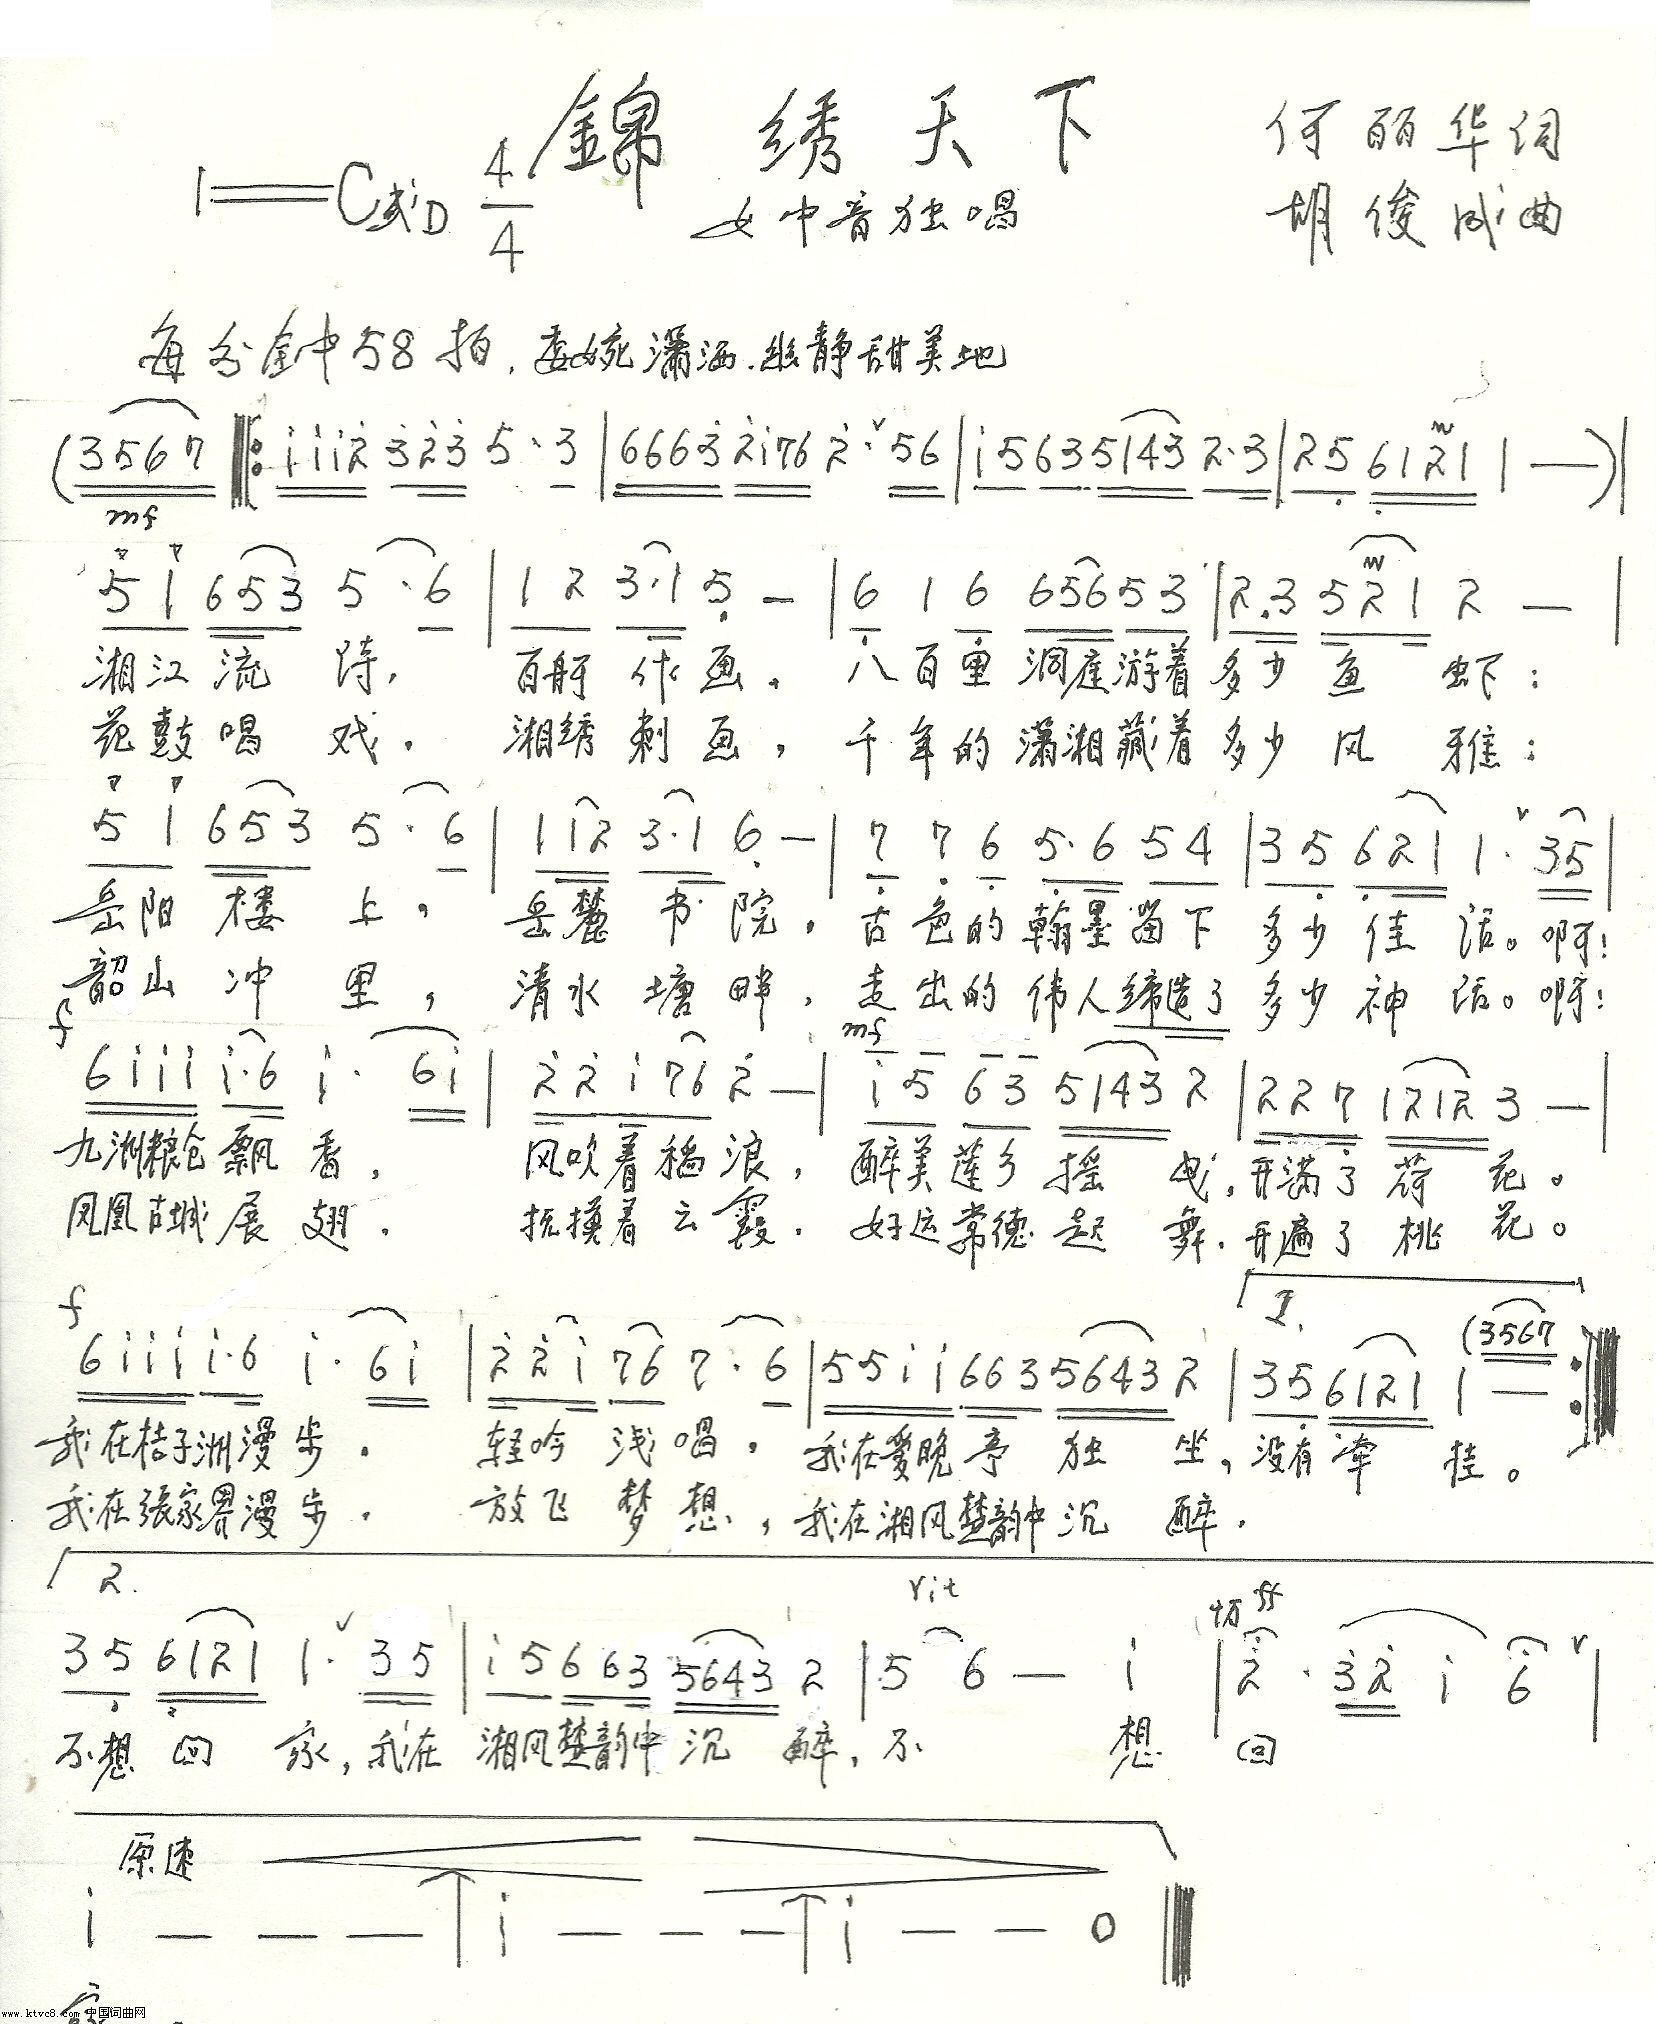 錦绣天下
何丽华词
1=C或D 4/4
女中音独唱
胡俊成曲
每分钟58拍.委婉潇洒.幽静甜美地
(3567 ‖: i i i 2 3 2 3 5 · 3 | 6 6 6 3 2 i 7 6 2 · 5 6 | i 5 6 3 5 1 4 3 2 · 3 | 2 5 6 1 2 1 1 — ) |
mf
5 1 6 5 3 5 · 6 | 1 2 3 · 1 5 — | 6 1 6 6 5 6 5 3 | 2 . 3 5 2 1 2 — |
湘江流诗, 百舸作画。八百里洞庭游着多少鱼虾:
花鼓唱戏. 湘绣刺画,千年的潇湘藏着多少风雅:
5 1 6 5 3 5 · 6 | 1 1 2 3 · 1 6 — | 7 7 6 5 · 6 5 4 | 3 5 6 2 1 1 · 3 5 |
岳阳楼上, 岳麓书院,古色的翰墨留下多少佳话。啊!
韶山冲里, 清水塘畔,走出的伟人缔造了多少神话。啊!
f mf
6 i i i i · 6 i · 6 i | 2 2 i 7 6 2 — | i 5 6 3 5 1 4 3 2 | 2 2 7 1 2 1 2 3 — |
九洲粮仓飘香, 风吹着稻浪,醉美莲乡摇曳,开满了荷花。
凤凰古城展翅. 抚摸着云霞.好运常德起舞.开遍了桃花。
f 1.
6 i i i i · 6 i · 6 i | 2 2 i 7 6 7 · 6 | 5 5 i i 6 6 3 5 6 4 3 2 | 3 5 6 1 2 1 1 — (3567 :‖
我在桔子洲漫步. 轻吟浅唱.我在爱晚亭独坐,没有牵挂。
我在張家界漫步. 放飞梦想,我在湘风楚韵中沉醉.
2. rit ff
3 5 6 1 2 1 1 · 3 5 | i 5 6 6 3 5 6 4 3 2 | 5 6 — i | 2 · 3 2 i 6 |
不想回家,我在湘风楚韵中沉醉,不想回
原速
i — — — | i — — — | i — — 0 ‖
家.
www.ktvc8.com 中国词曲网